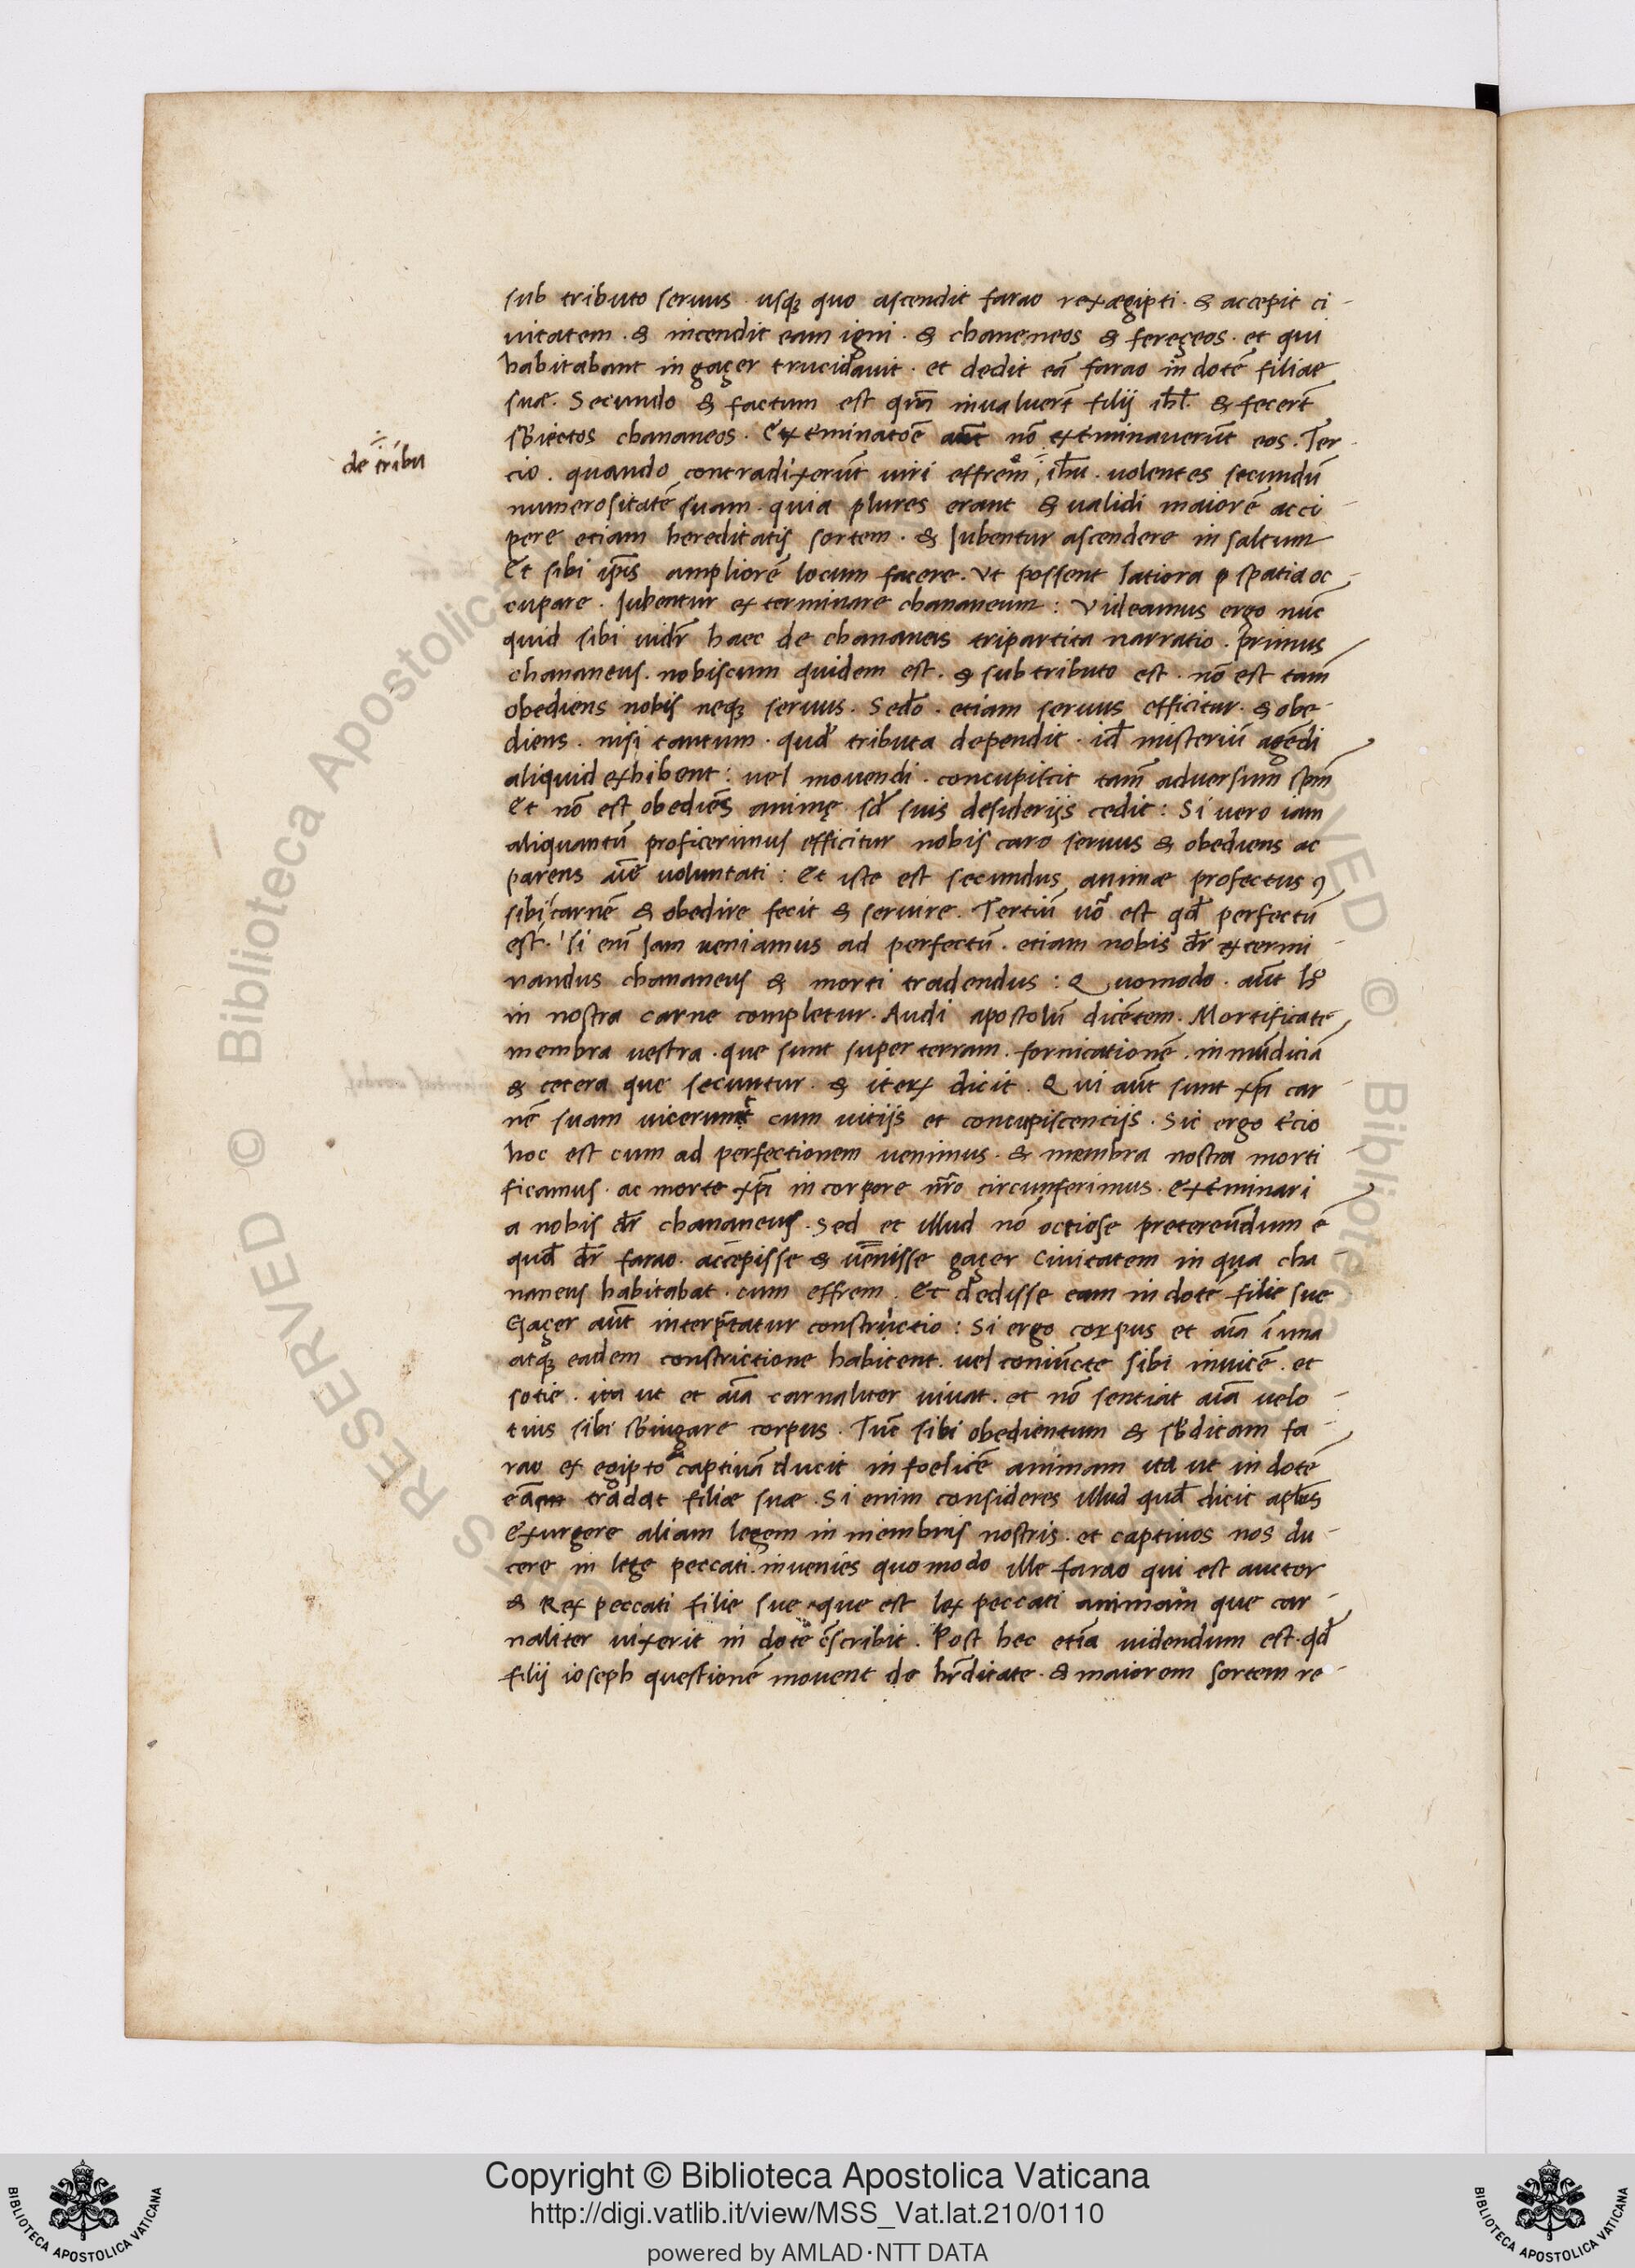 sub tributo seruus · usq; quo ascendit farao rex ægipti · & accepit ci-
uitatem · & incendit eam igni · & chaneneos & fereçeos · et qui
habitabant in gaçer trucidauit · et dedit eã farao in dotẽ filiae
suæ. Secundo & factum est qñ inualuerĩt filij iħl. & fecerĩt
sb̃iectos chananeos. Ext̃minatoẽ aũt nõ ext̃minauerũt eos. Ter-
de tribu
cio. quando contradixerũt uiri effrem iħu · uolentes secundũ
numerositatẽ suam · quia plures erant & ualidi maiorẽ acci-
pere etiam hereditatis sortem · & Iubentur ascendere in saltum
Et sibi ip̃is ampliorẽ locum facere. Vt possent latiora p spatia oc
cupare. Iubentur exterminare chananeum: Videamus ergo nũc
quid sibi uidr̃ haec de chananeis tripartita narratio. primus
chananeus. nobiscum quidem est. & sub tributo est. nõ est tam̃
obediens nobis neq; seruus. Sedo. etiam seruus efficitur. & obe-
diens. nisi tantum · quod̃ tributa dependit. id̃ misteriũ agẽdi
aliquid exhibent: uel mouendi. concupiscit tam̃ aduersum sp̃m
Et nõ est obediẽs animę sd̃ suis desiderijs cedit: Si uero iam
aliquantũ proficerimus efficitur nobis caro seruus & obediens ac
parens aĩe uoluntati: Et iste est secundus animæ profectus
sibi carnẽ & obedire fecit & seruire. Tertiũ uõ est qd̃ perfectũ
est. Si eni̇̃ Iam ueniamus ad perfectũ. etiam nobis dr̃ extermi-
nandus chananeus & morti tradendus: Quomodo. aũt h̊
in nostra carne completur. Audi apostolũ dicẽtem. Mortificate
membra uestra · que sunt super terram. fornicationẽ. inmũdiciã
& cetera que secuntur. & iterꝝ dicit. Qui aũt sunt xp̃i car-
nẽ suam uicerunt cum uitijs et concupiscencijs. Sic ergo t̃cio
hoc est cum ad perfectionem uenimus. & membra nostra morti
ficamus. ac morte xp̃i in corpore nr̃o circunferimus. ext̃minari
a nobis dr̃ chananeus. Sed et illud nõ octiose pretereũdum ẽ
quod̃ dr̃ farao. accepisse & uẽnisse gaçer Ciuitatem in qua cha
naneus habitabat. cum effrem. Et dedisse eam in dotẽ filie sue
Gaçer aũt interpr̃tatur constructio: Si ergo corpus et aĩa ĩ una
atq; eadem constrictione habitent. uel coniũcte sibi inuicẽ. et
sotie. ita ut et aĩa carnaliter uiuat. et nõ sentiat aĩa uelo-
tius sibi sb̃iugare corpus. Tũc sibi obedientum & sb̃ditam fa
rao ex egipto captiuã ducit in foelicẽ animam ita ut in dotẽ
eam tradat filiæ suæ. Si enim consideres illud quod̃ dicit apl̃us
Exurgere aliam legem in membris nostris. et captiuos nos du-
cere in lege peccati. inuenies quomodo ille farao qui est auctor
& Rex peccati filie sue que est lex peccati animam que car-
naliter uixerit in dotẽ cõscribit. Post hec etiã uidendum est. qd̃
filij ioseph questionẽ mouent de hr̃ditate. & maiorem sortem re-
Copyright © Biblioteca Apostolica Vaticana
http://digi.vatlib.it/view/MSS_Vat.lat.210/0110
powered by AMLAD·NTT DATA
BIBLIOTECA APOSTOLICA VATICANA
BIBLIOTECA APOSTOLICA VATICANA